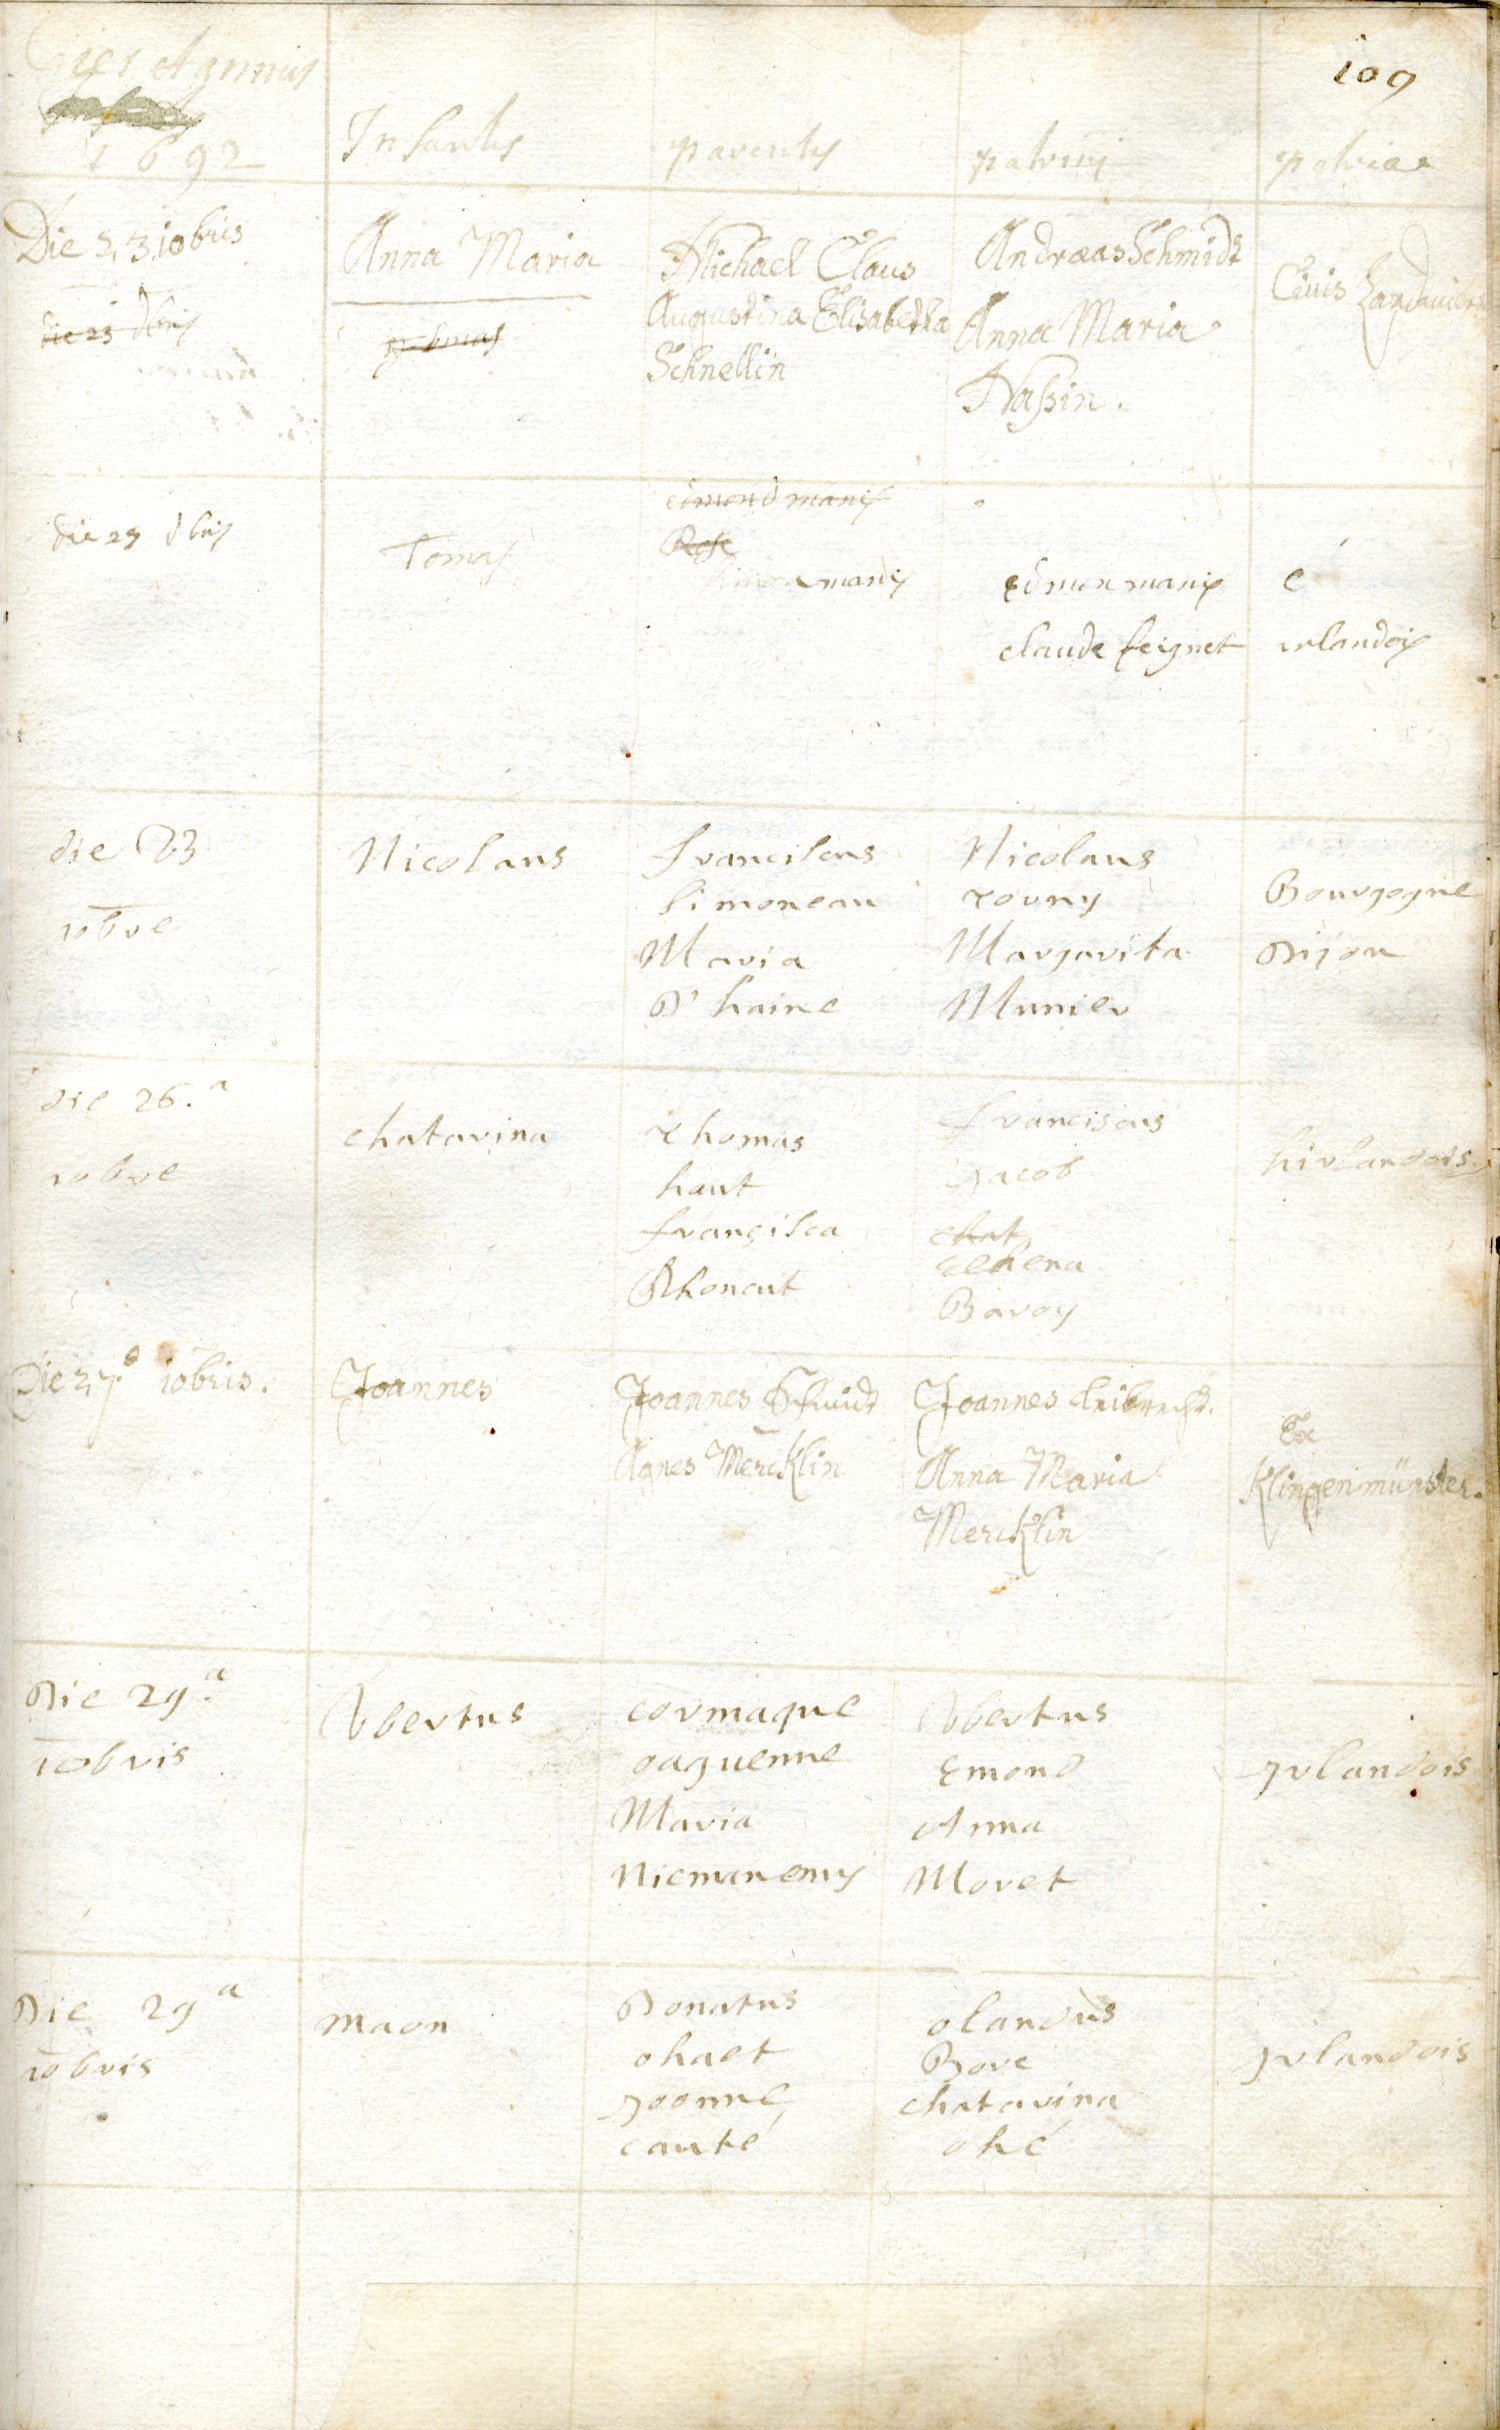 109
Dies et annus
1692
Infantes
parentes
patrini
patriae
Die 23 10bris
Anna Maria
Michael Claus
Augustina Elisabetha
Schnellin
Andraeas Schmidt
Anna Maria
Hassin.
Civis Landaviens
die 23 dbris
die 23 dbris
Tomas
edmond manis
Rose
manis
edmon manis
claude feignet
e
irlandois
die 23
10bre
Nicolaus
franciscus
simoneau
Maria
D'haine
Nicolaus
tourny
Margarita
Munier
Bourgogne
Dijon
die 26.a
10bre
chatarina
Thomas
haut
francisca
Rhoncut
franciscus
jacob
chat
Elhena
Baroy
hirlandois
Die 27.o 10bris.
Joannes
Joannes Schmidt
Agnes Mercklin
Joannes leibrecht.
Anna Maria
Mercklin
Ex
Klingenmünster.
Die 29.a
10bris
Obertus
cormaque
oaguenne
Maria
Niemanemy
Obertus
Emond
Anna
Moret
jrlandois
Die 29a
10bris
maon
Donatus
ohaet
joonne
cauté
olandus
Bore
chatarina
ohé
jrlandois